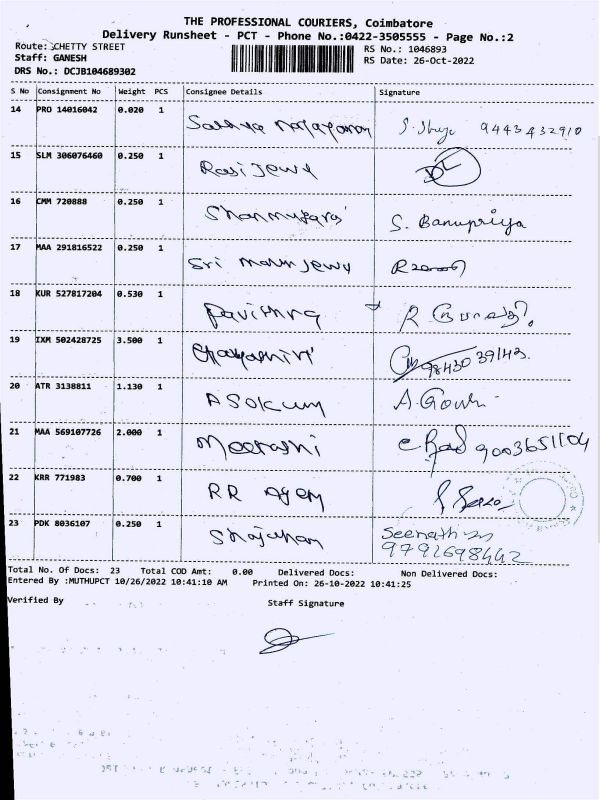 THE PROFESSIONAL COURIERS, Coimbatore
Delivery Runsheet - PCT - Phone No.:0422-3505555 - Page No.:2
Route: CHETTY STREET
RS No.: 1046893
Staff: GANESH
RS Date: 26-Oct-2022
DRS No.: DCJB104689302
S No Consignment No Weight PCS Consignee Details Signature
14 PRO 14016042 0.020 1 9443432910
15 SLM 306076460 0.250 1 Rasi Jewl
16 CMM 720888 0.250 1 S. Banupriya
17 MAA 291816522 0.250 1 Sri Jewl
18 KUR 527817204 0.530 1 Pavithra R
19 IXM 502428725 3.500 1 Gayathiri 9843039143
20 ATR 3138811 1.130 1 ASOKUM A. Gowri
21 MAA 569107726 2.000 1 Meenashi 9003651104
22 KRR 771983 0.700 1 RR Agem
23 PDK 8036107 0.250 1 Shajahan Seenath
9791698442
Total No. Of Docs: 23 Total COD Amt: 0.00 Delivered Docs: Non Delivered Docs:
Entered By :MUTHUPCT 10/26/2022 10:41:10 AM Printed On: 26-10-2022 10:41:25
Verified By
Staff Signature